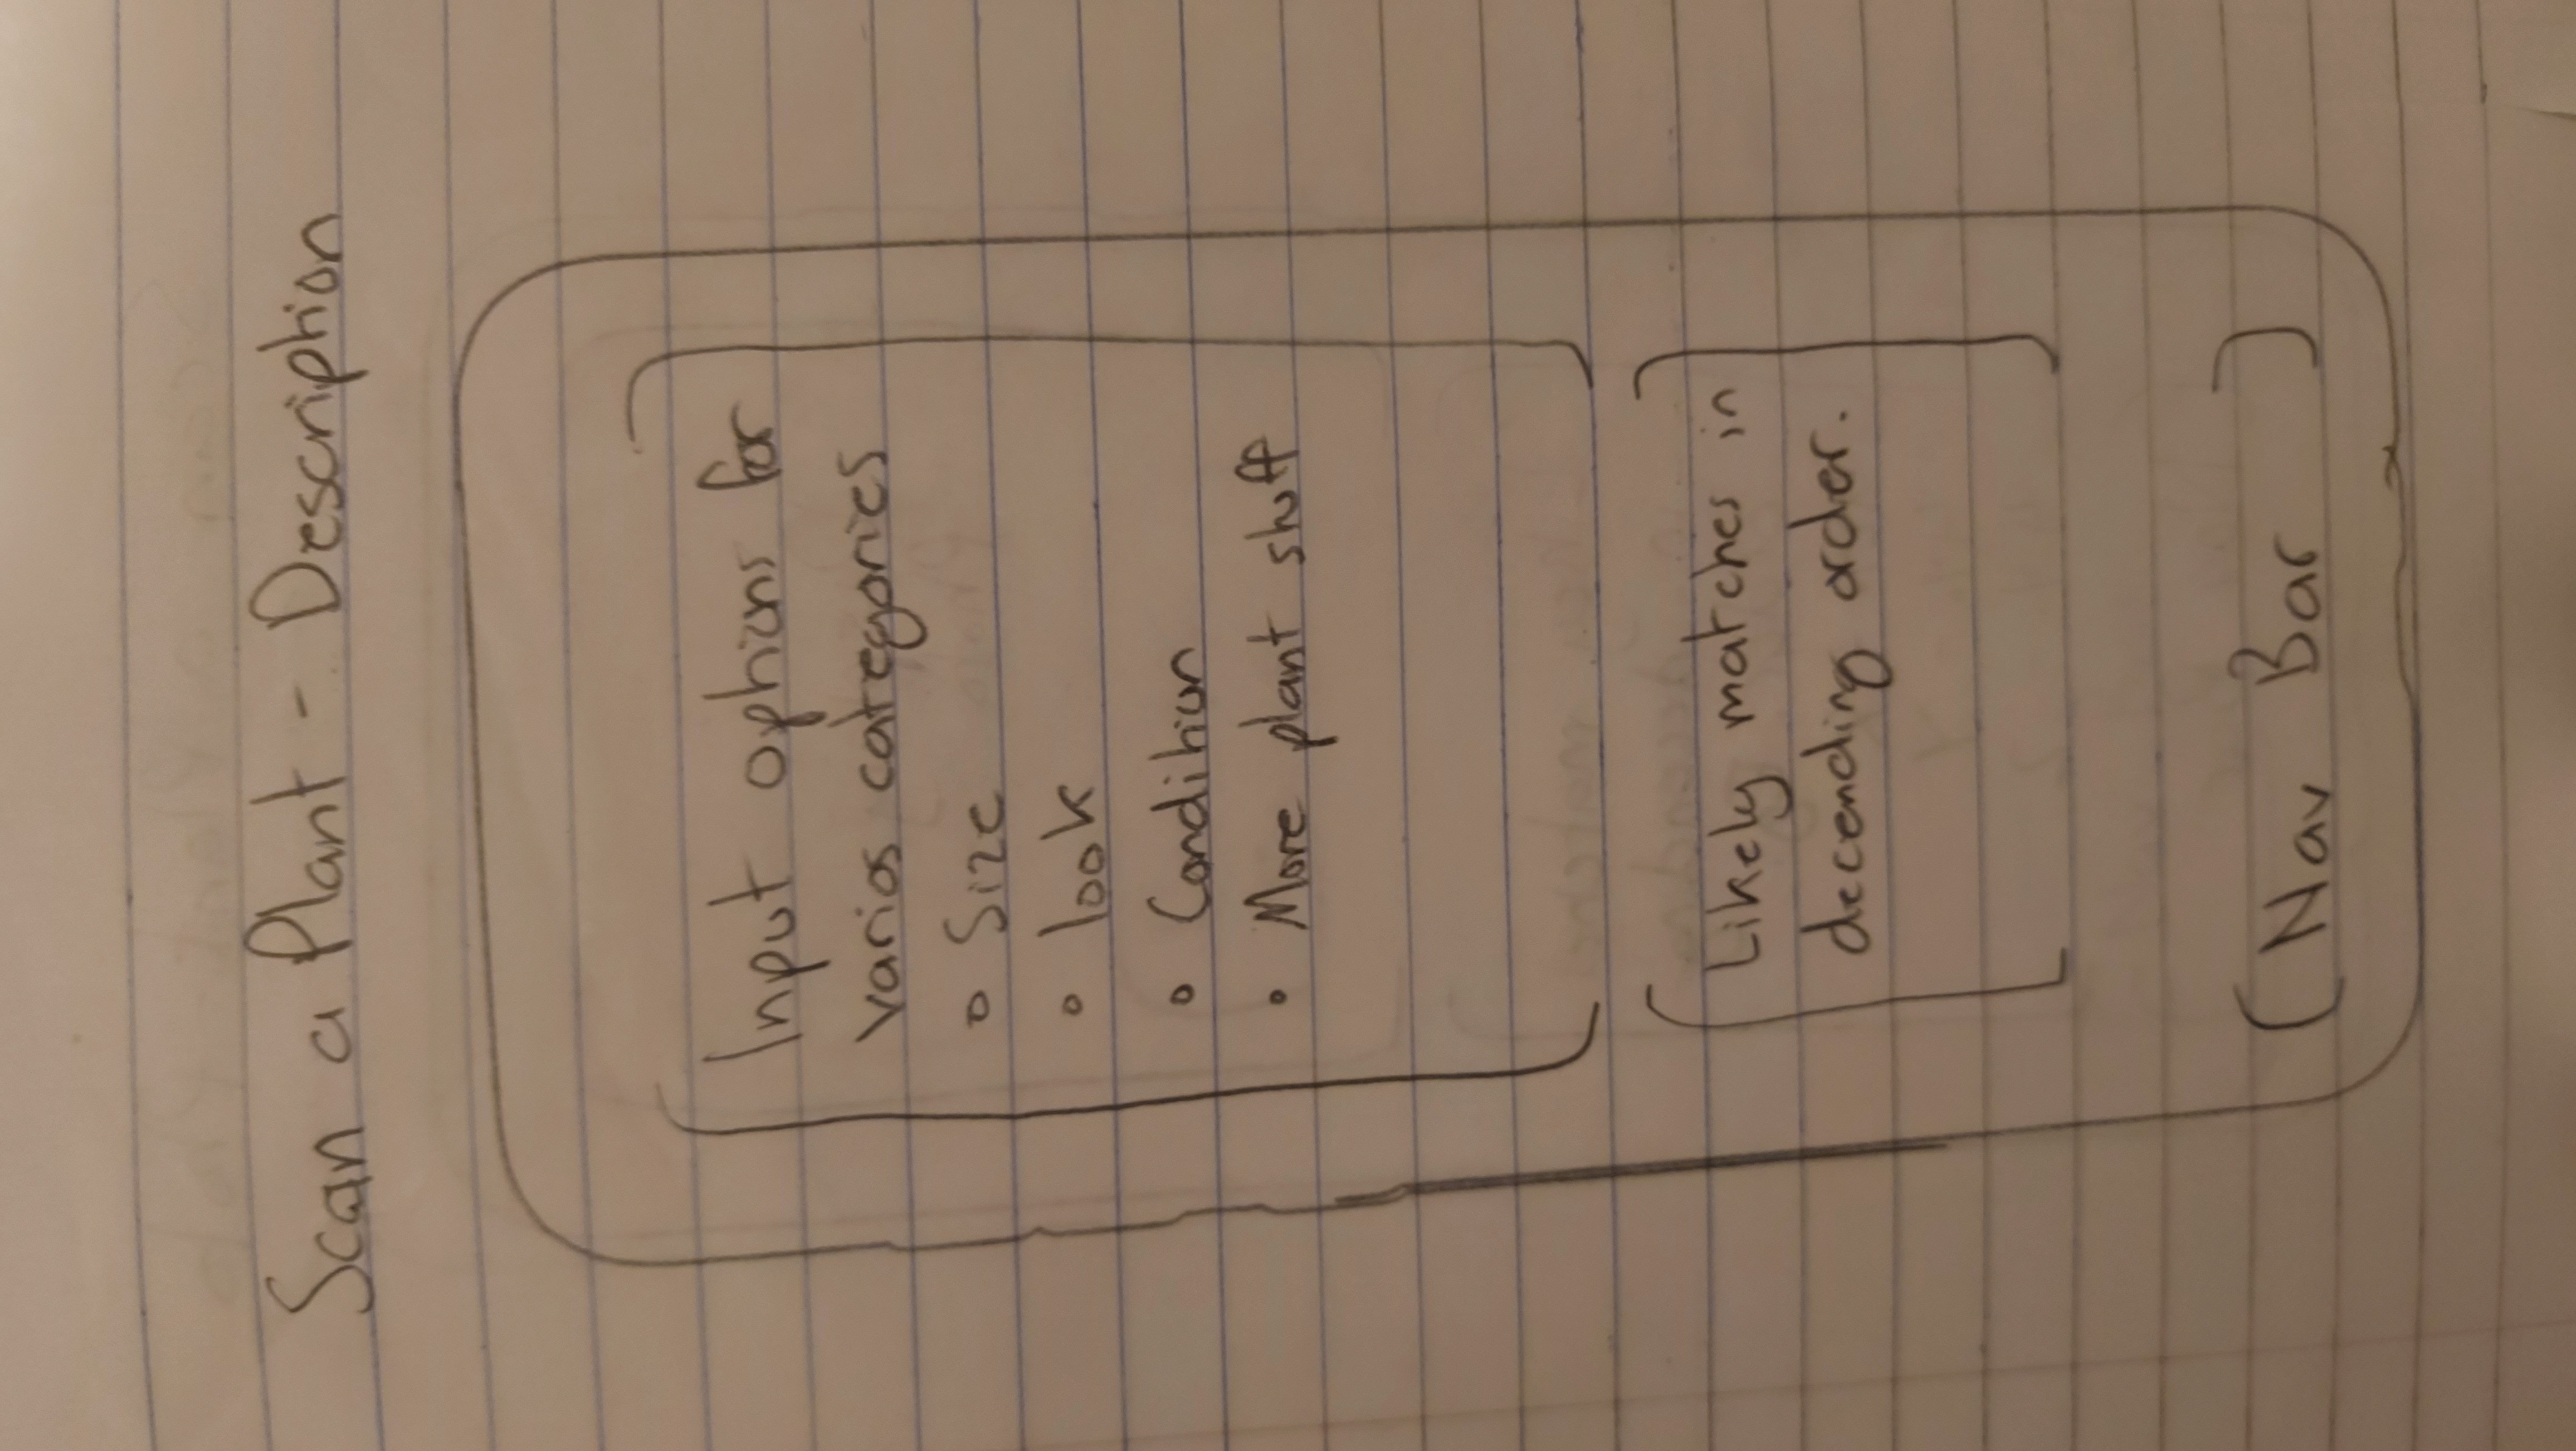 Scan a Plant - Description
Input options for
varios categories
o Size
o look
o Condition
o More plant stuff
Likely matches in
decending order.
Nav Bar